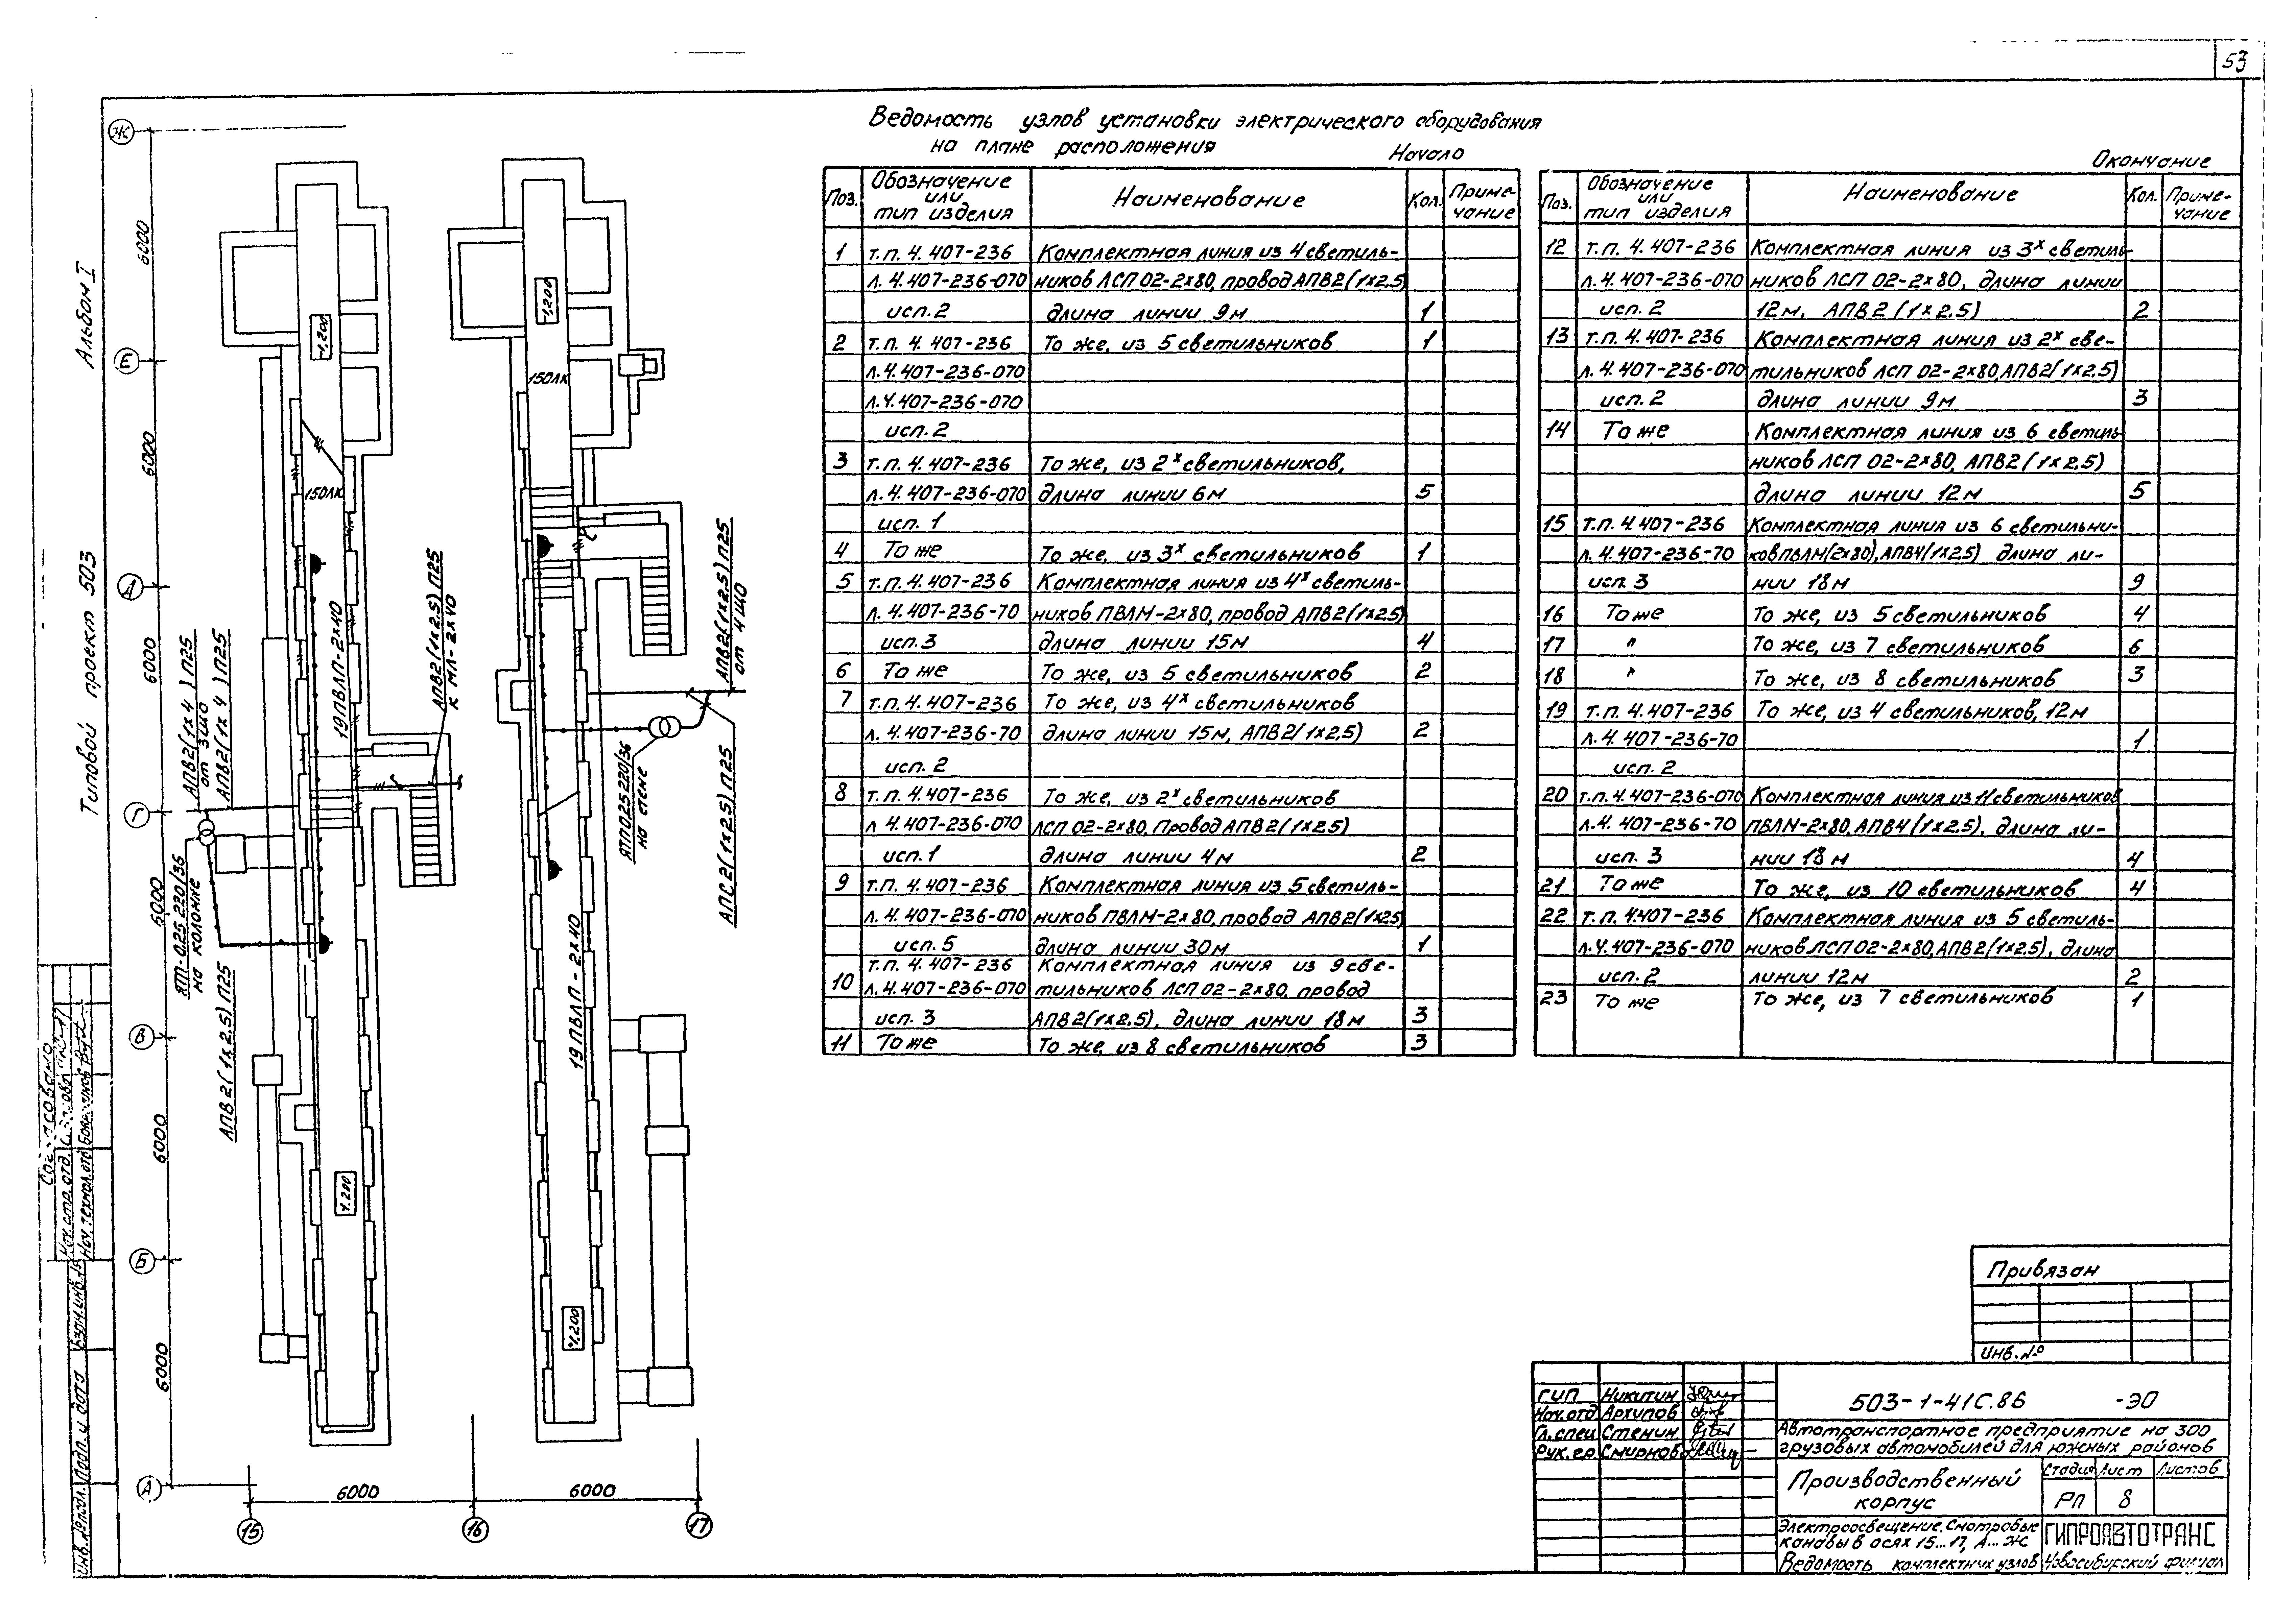 53
Альбом I
Типовой проект 503
Ведомость узлов установки электрического оборудования
на плане расположения
Начало
Поз. Обозначение или тип изделия Наименование Кол. Примечание
1 т.п. 4.407-236 Комплектная линия из 4 светиль-
л. 4.407-236-070 ников ЛСП 02-2х80, провод АПВ2(1х2.5)
исп. 2 длина линии 9м 1
2 т.п. 4.407-236 То же, из 5 светильников 1
л. 4.407-236-070
л. 4.407-236-070
исп. 2
3 т.п. 4.407-236 То же, из 2х светильников,
л. 4.407-236-070 длина линии 6м 5
исп. 1
4 То же То же, из 3х светильников 1
5 т.п. 4.407-236 Комплектная линия из 4х светиль-
л. 4.407-236-70 ников ПВЛМ-2х80, провод АПВ2(1х2.5)
исп. 3 длина линии 15м 4
6 То же То же, из 5 светильников 2
7 т.п. 4.407-236 То же, из 4х светильников
л. 4.407-236-70 длина линии 15м, АПВ2(1х2.5) 2
исп. 2
8 т.п. 4.407-236 То же, из 2х светильников
л 4.407-236-070 ЛСП 02-2х80, Провод АПВ2(1х2.5)
исп. 1 длина линии 4м 2
9 т.п. 4.407-236 Комплектная линия из 5 светиль-
л. 4.407-236-070 ников ПВЛМ-2х80, провод АПВ2(1х2.5)
исп. 5 длина линии 30м 1
т.п. 4.407-236 Комплектная линия из 9 све-
10 л. 4.407-236-070 тильников ЛСП 02-2х80, провод
исп. 3 АПВ2(1х2.5), длина линии 18м 3
11 То же То же, из 8 светильников 3
Окончание
Поз. Обозначение или тип изделия Наименование Кол. Примечание
12 т.п. 4.407-236 Комплектная линия из 3х светиль-
л. 4.407-236-070 ников ЛСП 02-2х80, длина линии
исп. 2 12м, АПВ2(1х2.5) 2
13 т.п. 4.407-236 Комплектная линия из 2х све-
л. 4.407-236-070 тильников ЛСП 02-2х80, АПВ2(1х2.5)
исп. 2 длина линии 9м 3
14 То же Комплектная линия из 6 светиль-
ников ЛСП 02-2х80, АПВ2(1х2.5)
длина линии 12м 5
15 т.п. 4.407-236 Комплектная линия из 6 светильни-
л. 4.407-236-70 ков ПВЛМ(2х80), АПВ4(1х2.5) длина ли-
исп. 3 нии 18м 9
16 То же То же, из 5 светильников 4
17 " То же, из 7 светильников 6
18 " То же, из 8 светильников 3
19 т.п. 4.407-236 То же, из 4 светильников, 12м
л. 4.407-236-70 1
исп. 2
20 т.п. 4.407-236-070 Комплектная линия из 11 светильников
л. 4.407-236-70 ПВЛМ-2х80, АПВ4(1х2.5), длина ли-
исп. 3 нии 18м 4
21 То же То же, из 10 светильников 4
22 т.п. 4.407-236 Комплектная линия из 5 светиль-
л. 4.407-236-070 ников ЛСП 02-2х80, АПВ2(1х2.5), длина
исп. 2 линии 12м 2
23 То же То же, из 7 светильников 1
Ж
Е
Д
Г
В
Б
А
6000
6000
6000
6000
6000
6000
-1.200
150ЛК
19ПВЛП-2х40
АПВ2(1х2.5)П25
к МЛ-2х40
АПВ2(1х4)П25
от 3ЩО
АПВ2(1х4)П25
ЯТП-0.25 220/36
на колонке
АПВ2(1х2.5)П25
-1.200
-1.200
150ЛК
АПВ2(1х2.5)П25
от 4ЩО
ЯТП 0.25 220/36
на стене
АПС2(1х2.5)П25
19ПВЛП-2х40
-1.200
6000 6000
15 16 17
Согласовано
Нач.стр.отд.
Нач.технол.отд.
Взам.инв.№
Подп. и дата
Инв.№ подл.
Привязан
Инв.№
ГИП Никитин
Нач.отд Архипов
Гл.спец Стенин
Рук.гр. Смирнов
503-1-41С.86 -ЭО
Автотранспортное предприятие на 300
грузовых автомобилей для южных районов
Производственный
корпус
Стадия Лист Листов
РП 8
Электроосвещение. Смотровые
канавы в осях 15...17, А...Ж
Ведомость комплектных узлов
ГИПРОАВТОТРАНС
Новосибирский филиал